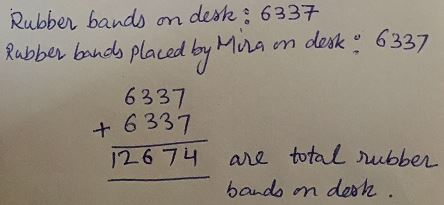 Rubber bands on desk : 6337
Rubber bands placed by Mira on desk : 6337
6337
+ 6337
12674 are total rubber
bands on desk.